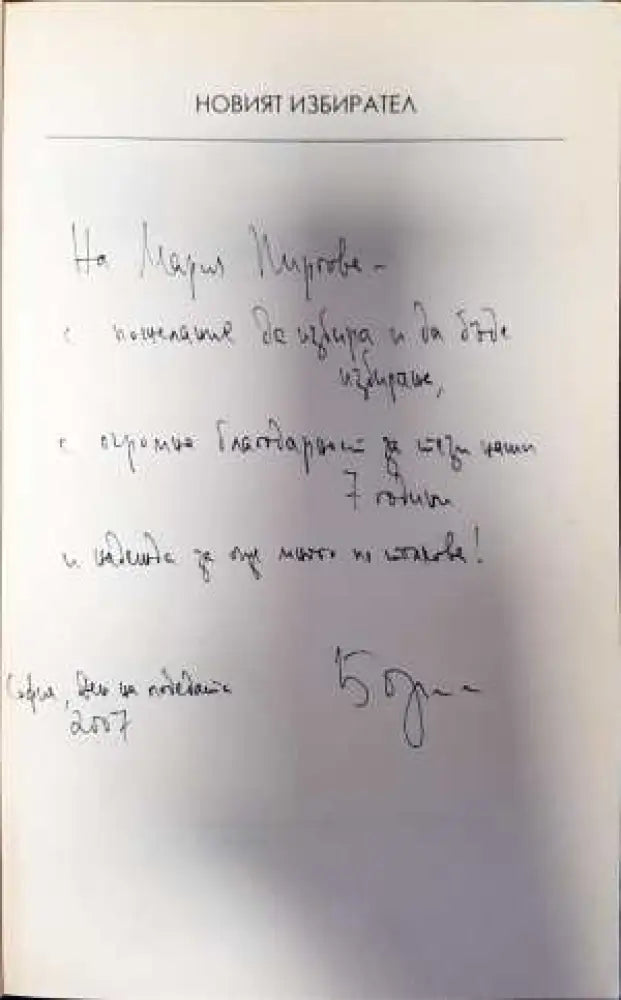 НОВИЯТ ИЗБИРАТЕЛ
На Мария Пиргова –
с пожелание да избира и да бъде
избирана,
с огромна благодарност за тези наши
7 години
и надежда за още много по толкова!
София, Ден на победата
2007